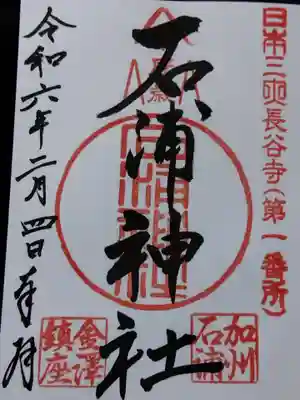 日本三大長谷寺(第一番所)
石浦神社
加州
石浦
金澤
鎮座
令和六年二月四日奉拝